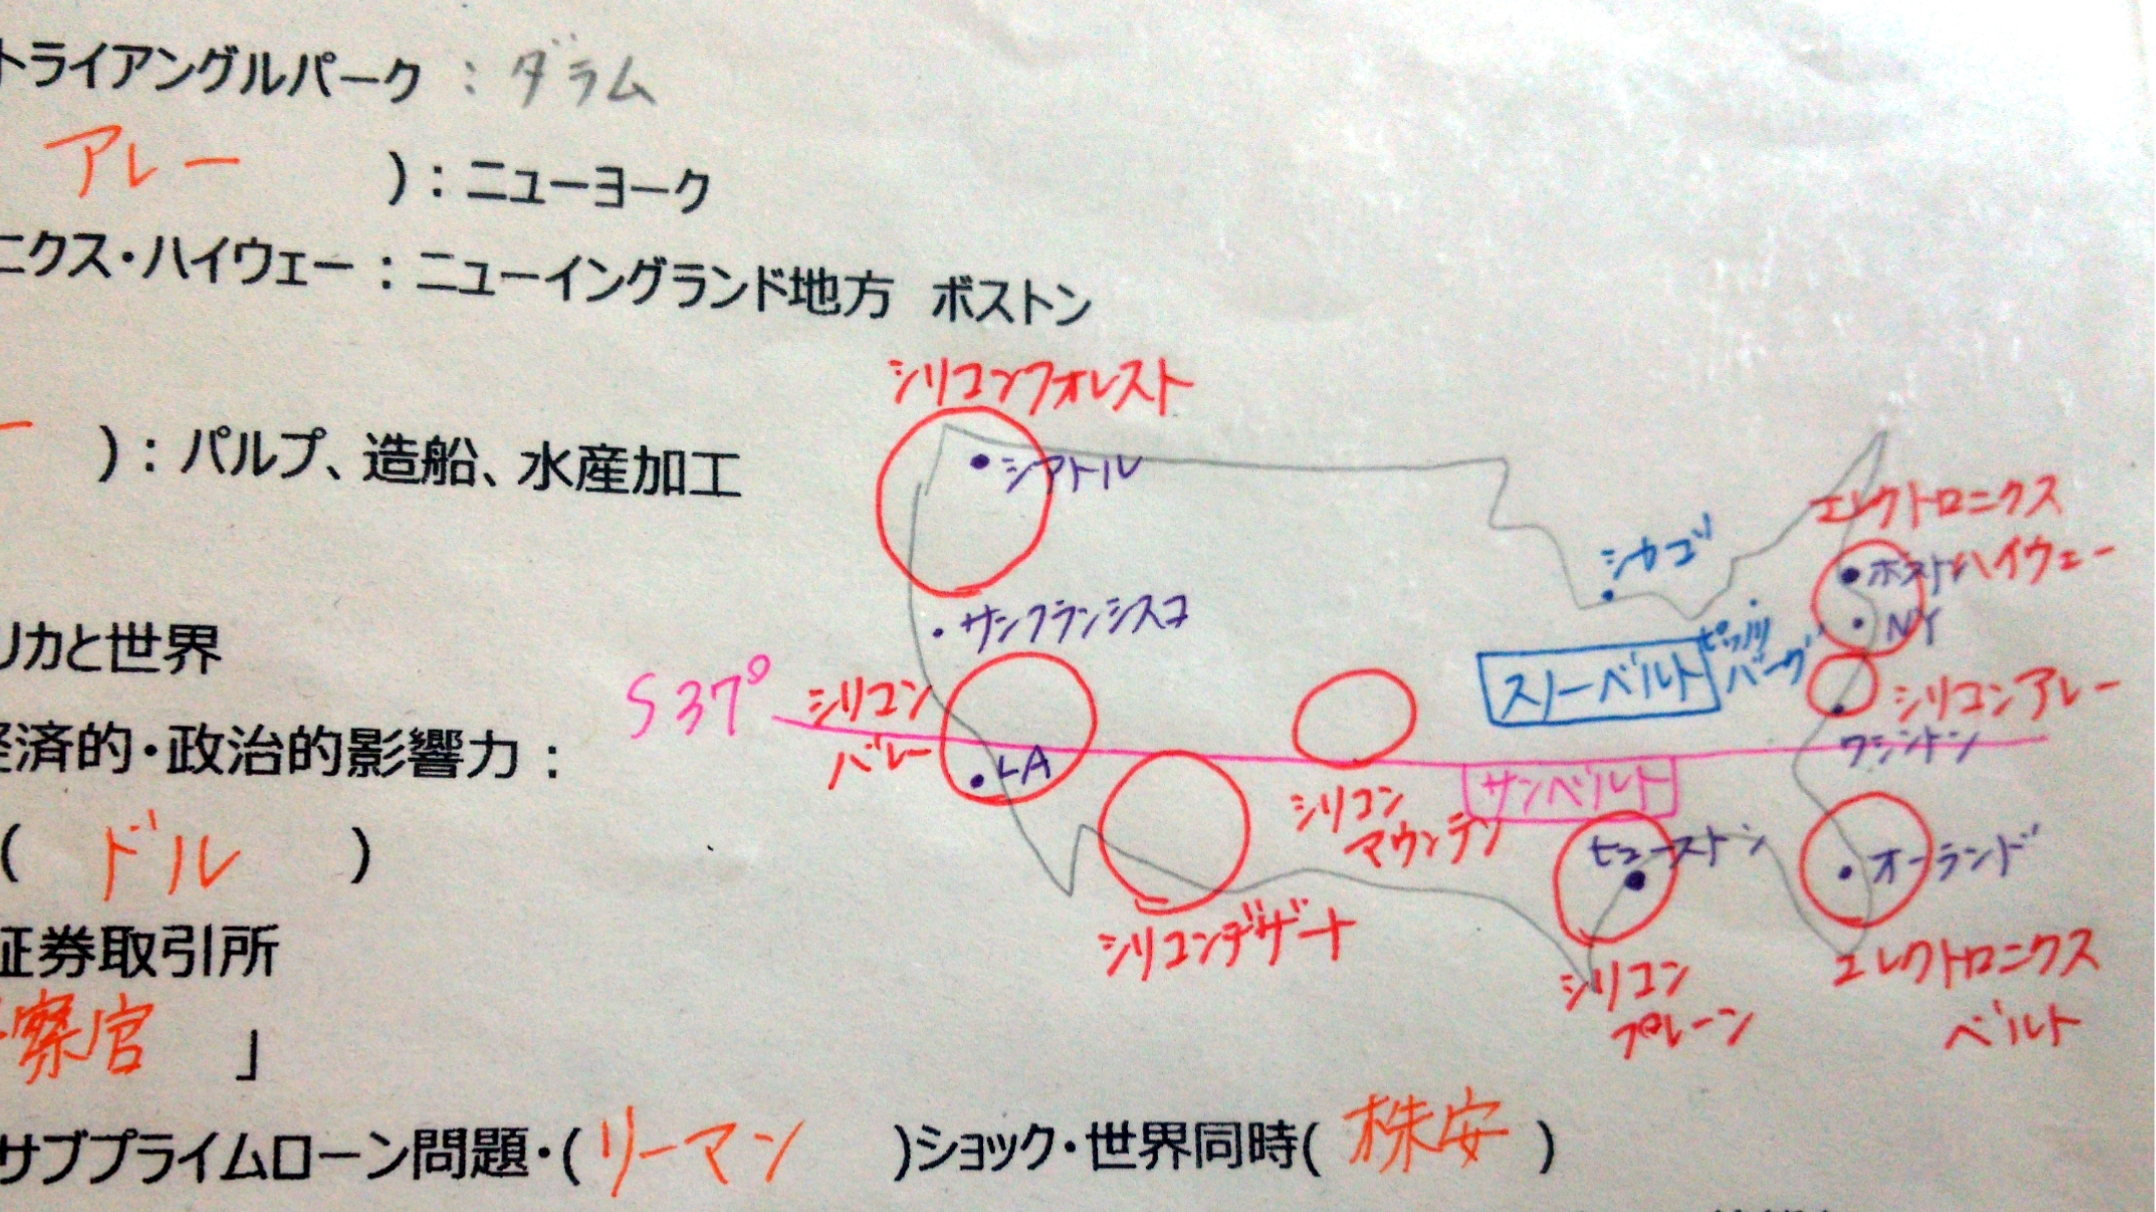 トライアングルパーク：ダラム
アレー ）：ニューヨーク
ニクス・ハイウェー：ニューイングランド地方　ボストン
ー ）：パルプ、造船、水産加工
リカと世界
経済的・政治的影響力：
（ ドル ）
証券取引所
察官 」
サブプライムローン問題・（ リーマン ）ショック・世界同時（ 株安 ）
シリコンフォレスト
シアトル
エレクトロニクス
ハイウェー
シカゴ
ボストン
サンフランシスコ
NY
ピッツ
バーグ
スノーベルト
S37°
シリコン
バレー
シリコンアレー
ワシントン
LA
サンベルト
シリコン
マウンテン
ヒューストン
オーランド
シリコンデザート
シリコン
プレーン
エレクトロニクス
ベルト